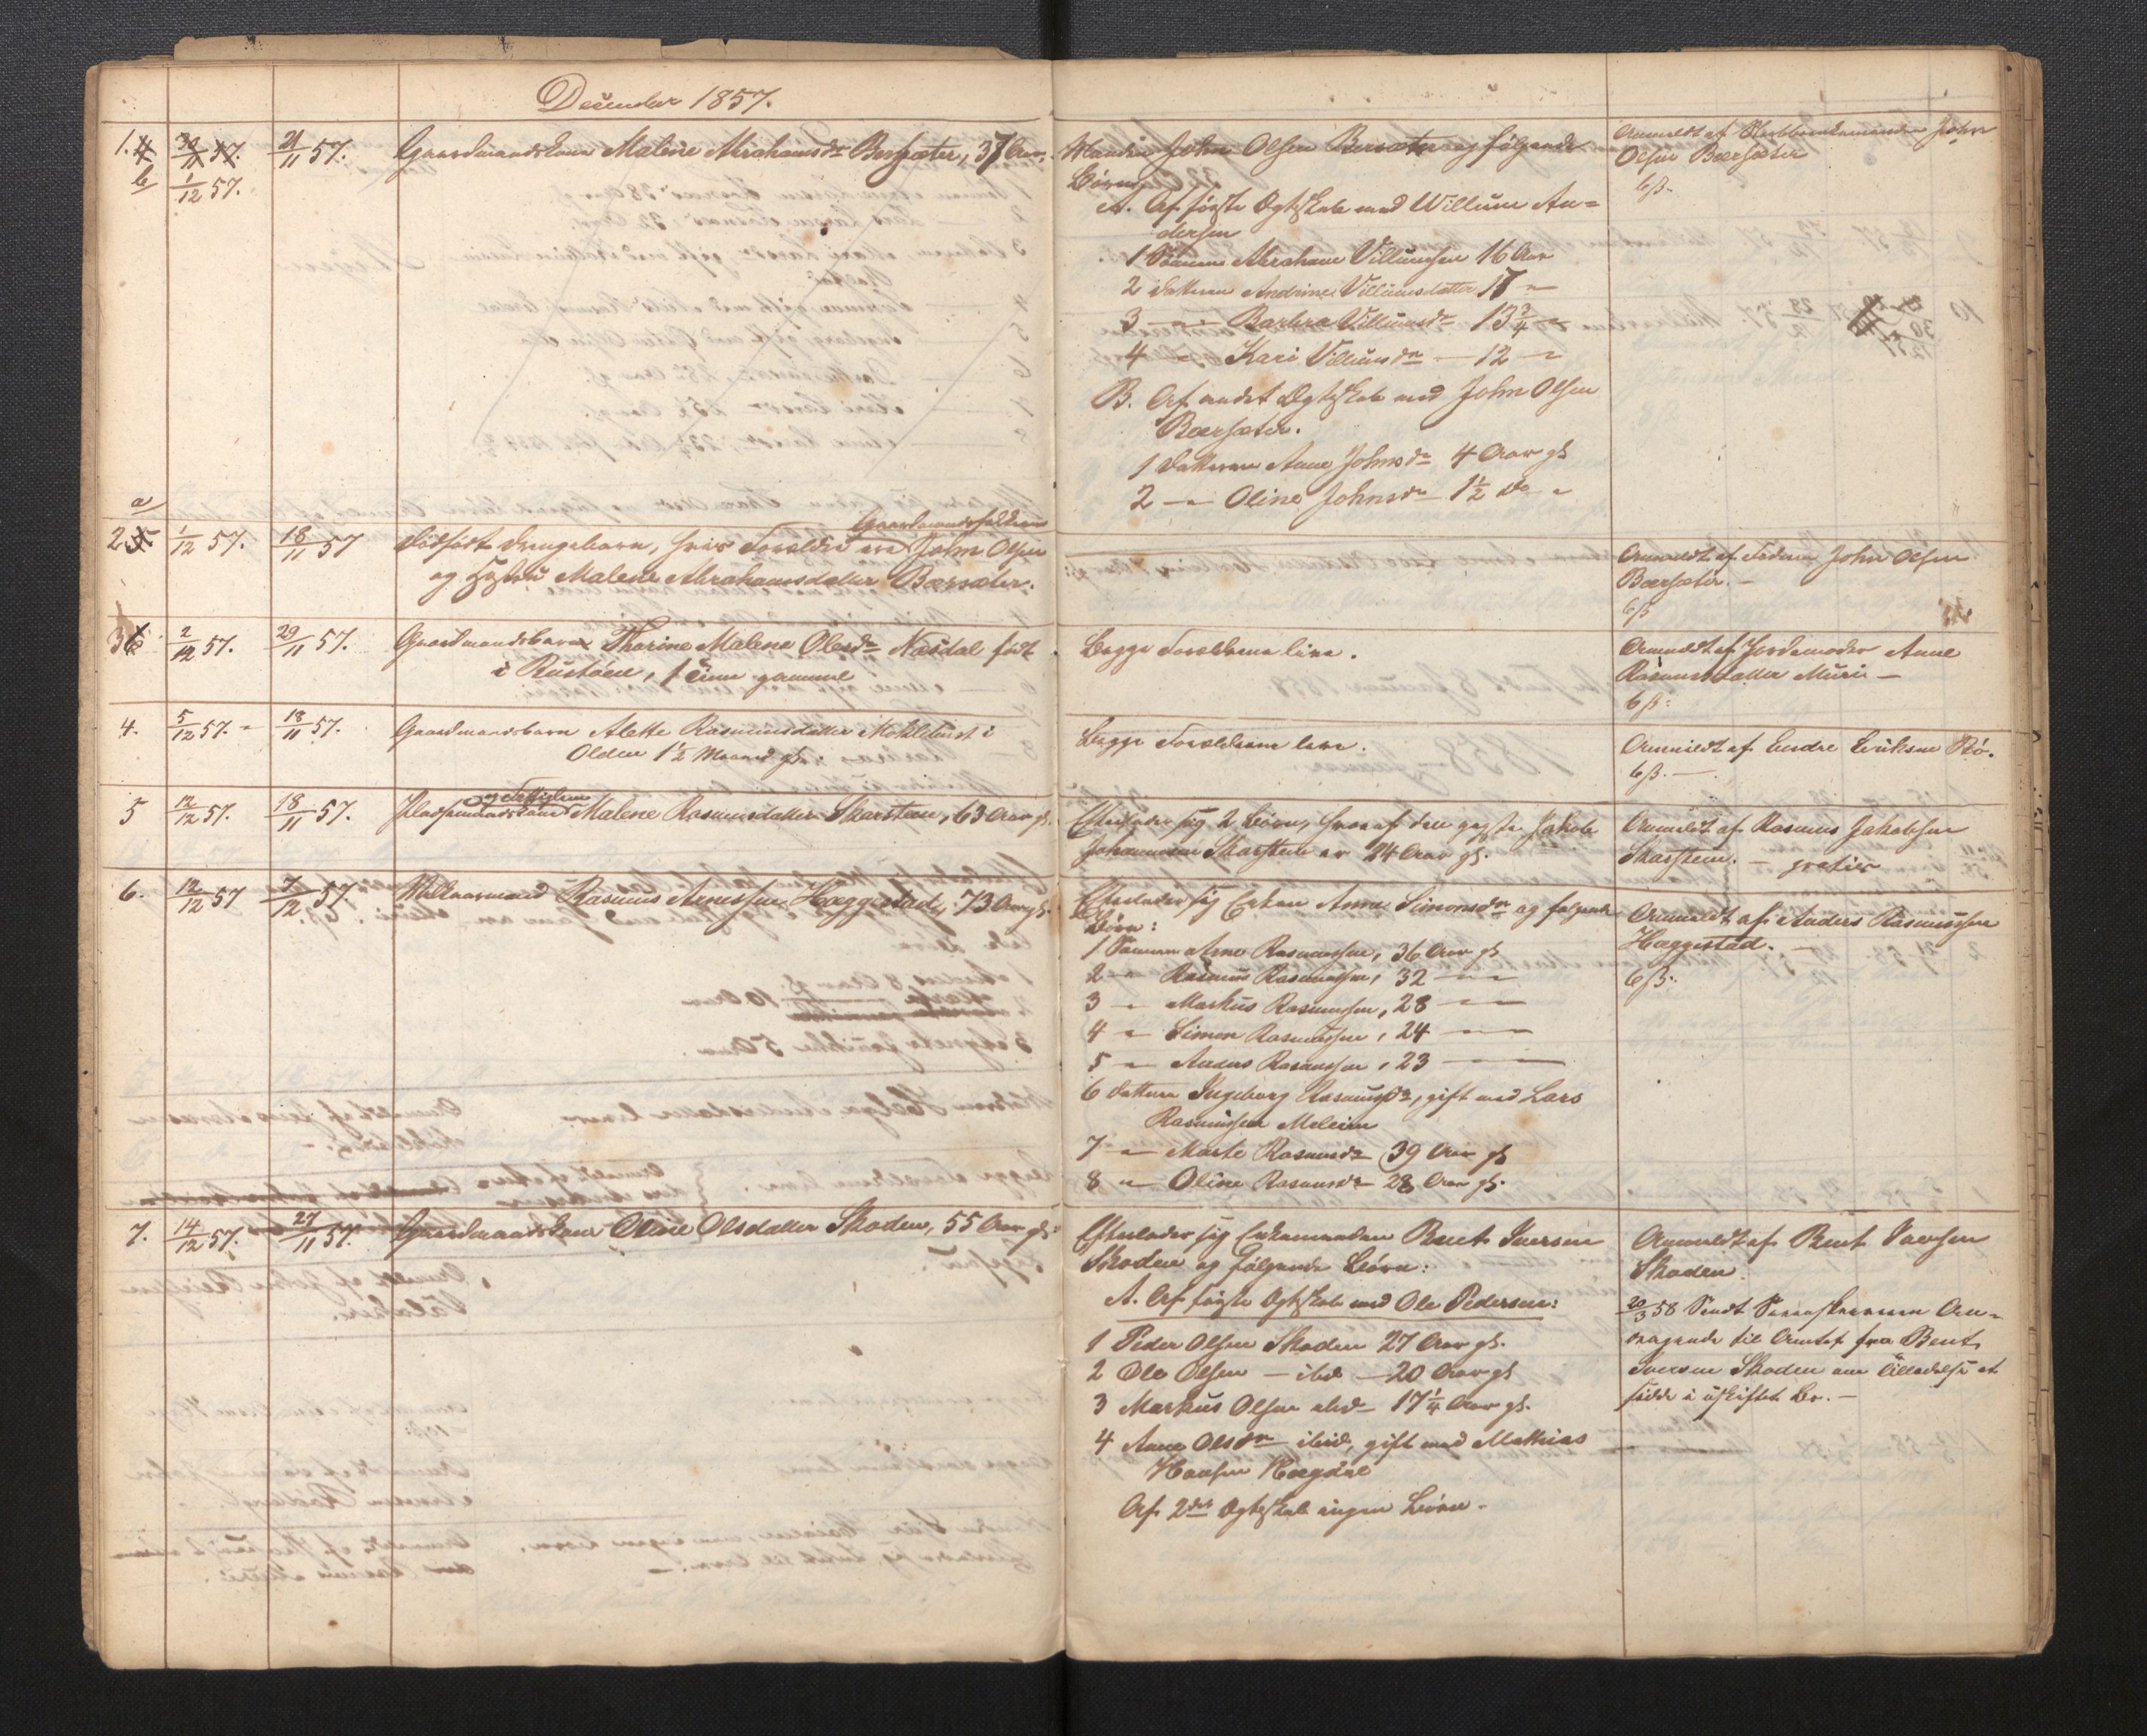 December 1857.
1. 4 30/11 57. 21/11 57. Gaardmandskone Malene Abrahamsdr Bersæter, 37 Aar,
b 1/12 57.
Manden John Olsen Bersæter og følgende
Børn:
A. Af første Ægteskab med Willum An=
dersen
1 Sønnen Abraham Villumsen 16 Aar
2 Datteren Andrine Villumsdatter 17 "
3 — " — Barbra Villumsdr 13 3/4 "
4 " Kari Villumsdr — 12 — "
B. Af andet Ægteskab med John Olsen
Bærsæter.
1 Datteren Anne Johnsdr 4 Aar gl
2 — " Oline Johnsdr 1 1/2 do "
Anmeldt af John
Olsen Bærsæter
6 ß.
a
2 5 1/12 57. 18/11 57 Dødfødt Drengebarn, hvis Forældre ere Gaardmandsfolkene John Olsen
og Hustru Malene Abrahamsdatter Bærsæter.
Anmeldt af Faderen John Olsen
Bærsæter. —
6 ß
3 6 2/12 57. 29/11 57. Gaardmandsbarn Thorine Malene Olesdr Næsdal født
i Rustøen, 1 Time gammel
Begge Forældrene leve.
Anmeldt af Jordemoder Anne
Rasmusdatter Muri —
6 ß.
4. 5/12 57. — 18/11 57. Gaardmandsbarn Alette Rasmusdatter i
Olden 1 1/2 Maaned gl.
Begge Forældrene leve.
Anmeldt af Endre Eriksen Bø.
6 ß. —
5 12/12 57. 18/11 57. Pladsemandskone og Fattiglem Malene Rasmusdatter Skarsteen, 63 Aar gl.
Efterlader sig 2 Børn, hvoraf den yngste Jakob
Johannesen Skarsteen er 24 Aar gl.
Anmeldt af Rasmus Jakobsen
Skarsteen. — gratis
6. 12/12 57 7/12 57. Vilkaarmand Rasmus Arnessen Hæggestad, 73 Aar gl.
Efterlader sig Enken Anne Simonsdr og følgende
Børn:
1 Sønnen Arne Rasmussen, 36 Aar gl
2 — " Rasmus Rasmussen, 32 — "
3 " Markus Rasmussen, 28 — "
4 " Simon Rasmussen, 24 — "
5 " Anders Rasmussen, 23 — "
6 Datteren Ingeborg Rasmusdr, gift med Lars
Rasmussen Meleim
7 — " Marte Rasmusdr 39 Aar gl
8 " Oline Rasmusdr 28 Aar gl.
Anmeldt af Anders Rasmussen
Hæggestad. —
6 ß.
7. 14/12 57. 27/11 57. Gaardmandskone Oline Olsdatter Skaden, 55 Aar gl.
Efterlader sig Enkemanden Bent Iversen
Skaden og følgende Børn:
A. Af første Ægteskab med Ole Pedersen:
1 Peder Olsen Skaden 27 Aar gl.
2 Ole Olsen — ibid — 20 Aar gl
3 Markus Olsen ibid — 17 1/4 Aar gl.
4 Anne Olsdr ibid, gift med Mathias
Hansen
Af 2det Ægteskab ingen Børn.
Anmeldt af Bent Iversen
Skaden.
20/3 58 Sendt Sorenskriveren An=
dragende til Amtet fra Bent
Iversen Skaden om Tilladelse at
sidde i uskiftet Bo. —